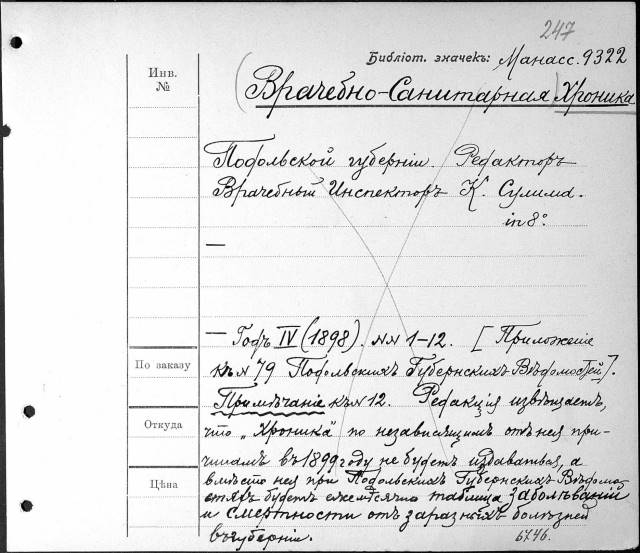 247
Библіот. значекъ: Манасс. 9322
Инв.
№
(Врачебно-Санитарная) Хроника
Подольской губерніи. Редакторъ
Врачебный Инспекторъ К. Сулима.
in 8°.
—
— Годъ IV (1898). №№ 1-12. [Приложеніе
къ № 79 Подольскихъ Губернскихъ Вѣдомостей].
По заказу
Примѣчаніе къ № 12. Редакція извѣщаетъ,
Откуда
что „Хроника" по независящимъ отъ нея при-
чинамъ въ 1899 году не будетъ издаваться, а
Цѣна
вмѣсто нея при Подольскихъ Губернскихъ Вѣдомо-
стяхъ будетъ ежемѣсячно таблица заболѣваній
и смертности отъ заразныхъ болѣзней
въ губерніи.
6746.